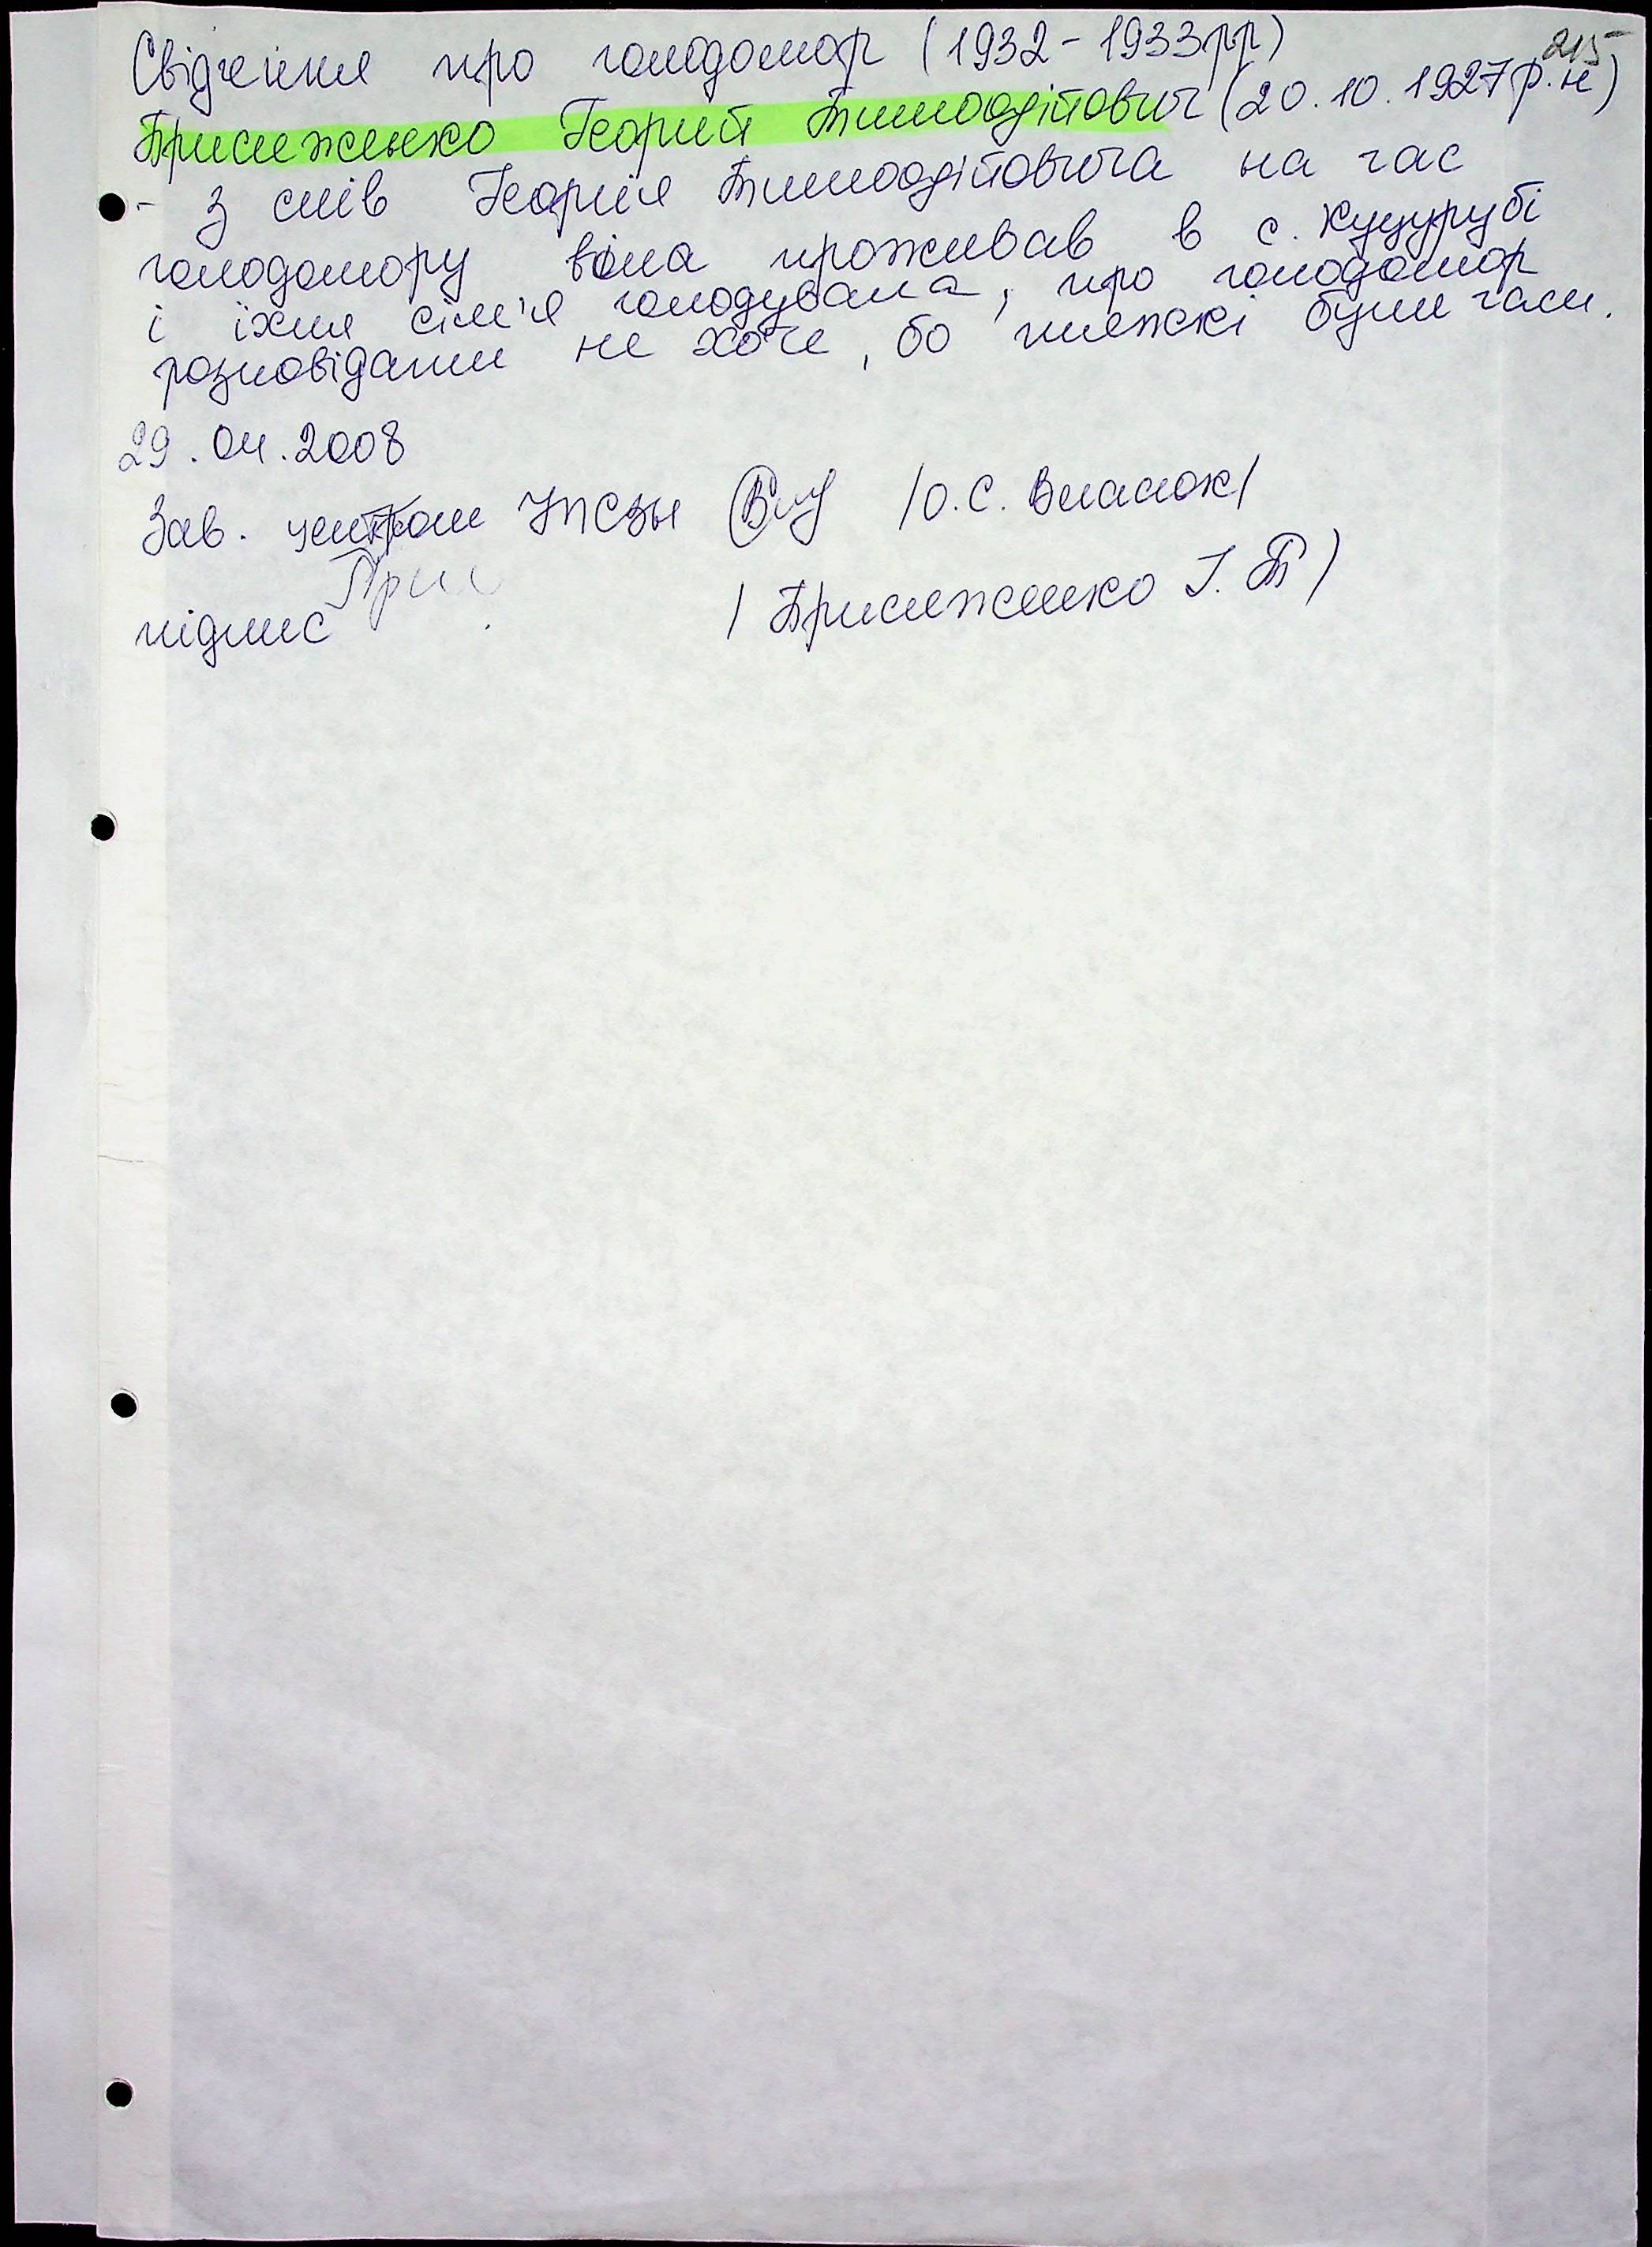 215
Свідчення про голодомор (1932-1933рр)
Присяженко Георгий Тимофійович (20.10.1927р.н)
- З слів Георгія Тимофійовича на час
голодомору вона проживав в с. Куцурубі
і їхня сім'я голодувала, про голодомор
розповідати не хоче, бо тяжкі були часи.
29.04.2008
Зав. центром УПСЗН /О.С. Власюк/
підпис При
/ Присяженко Г.Т /